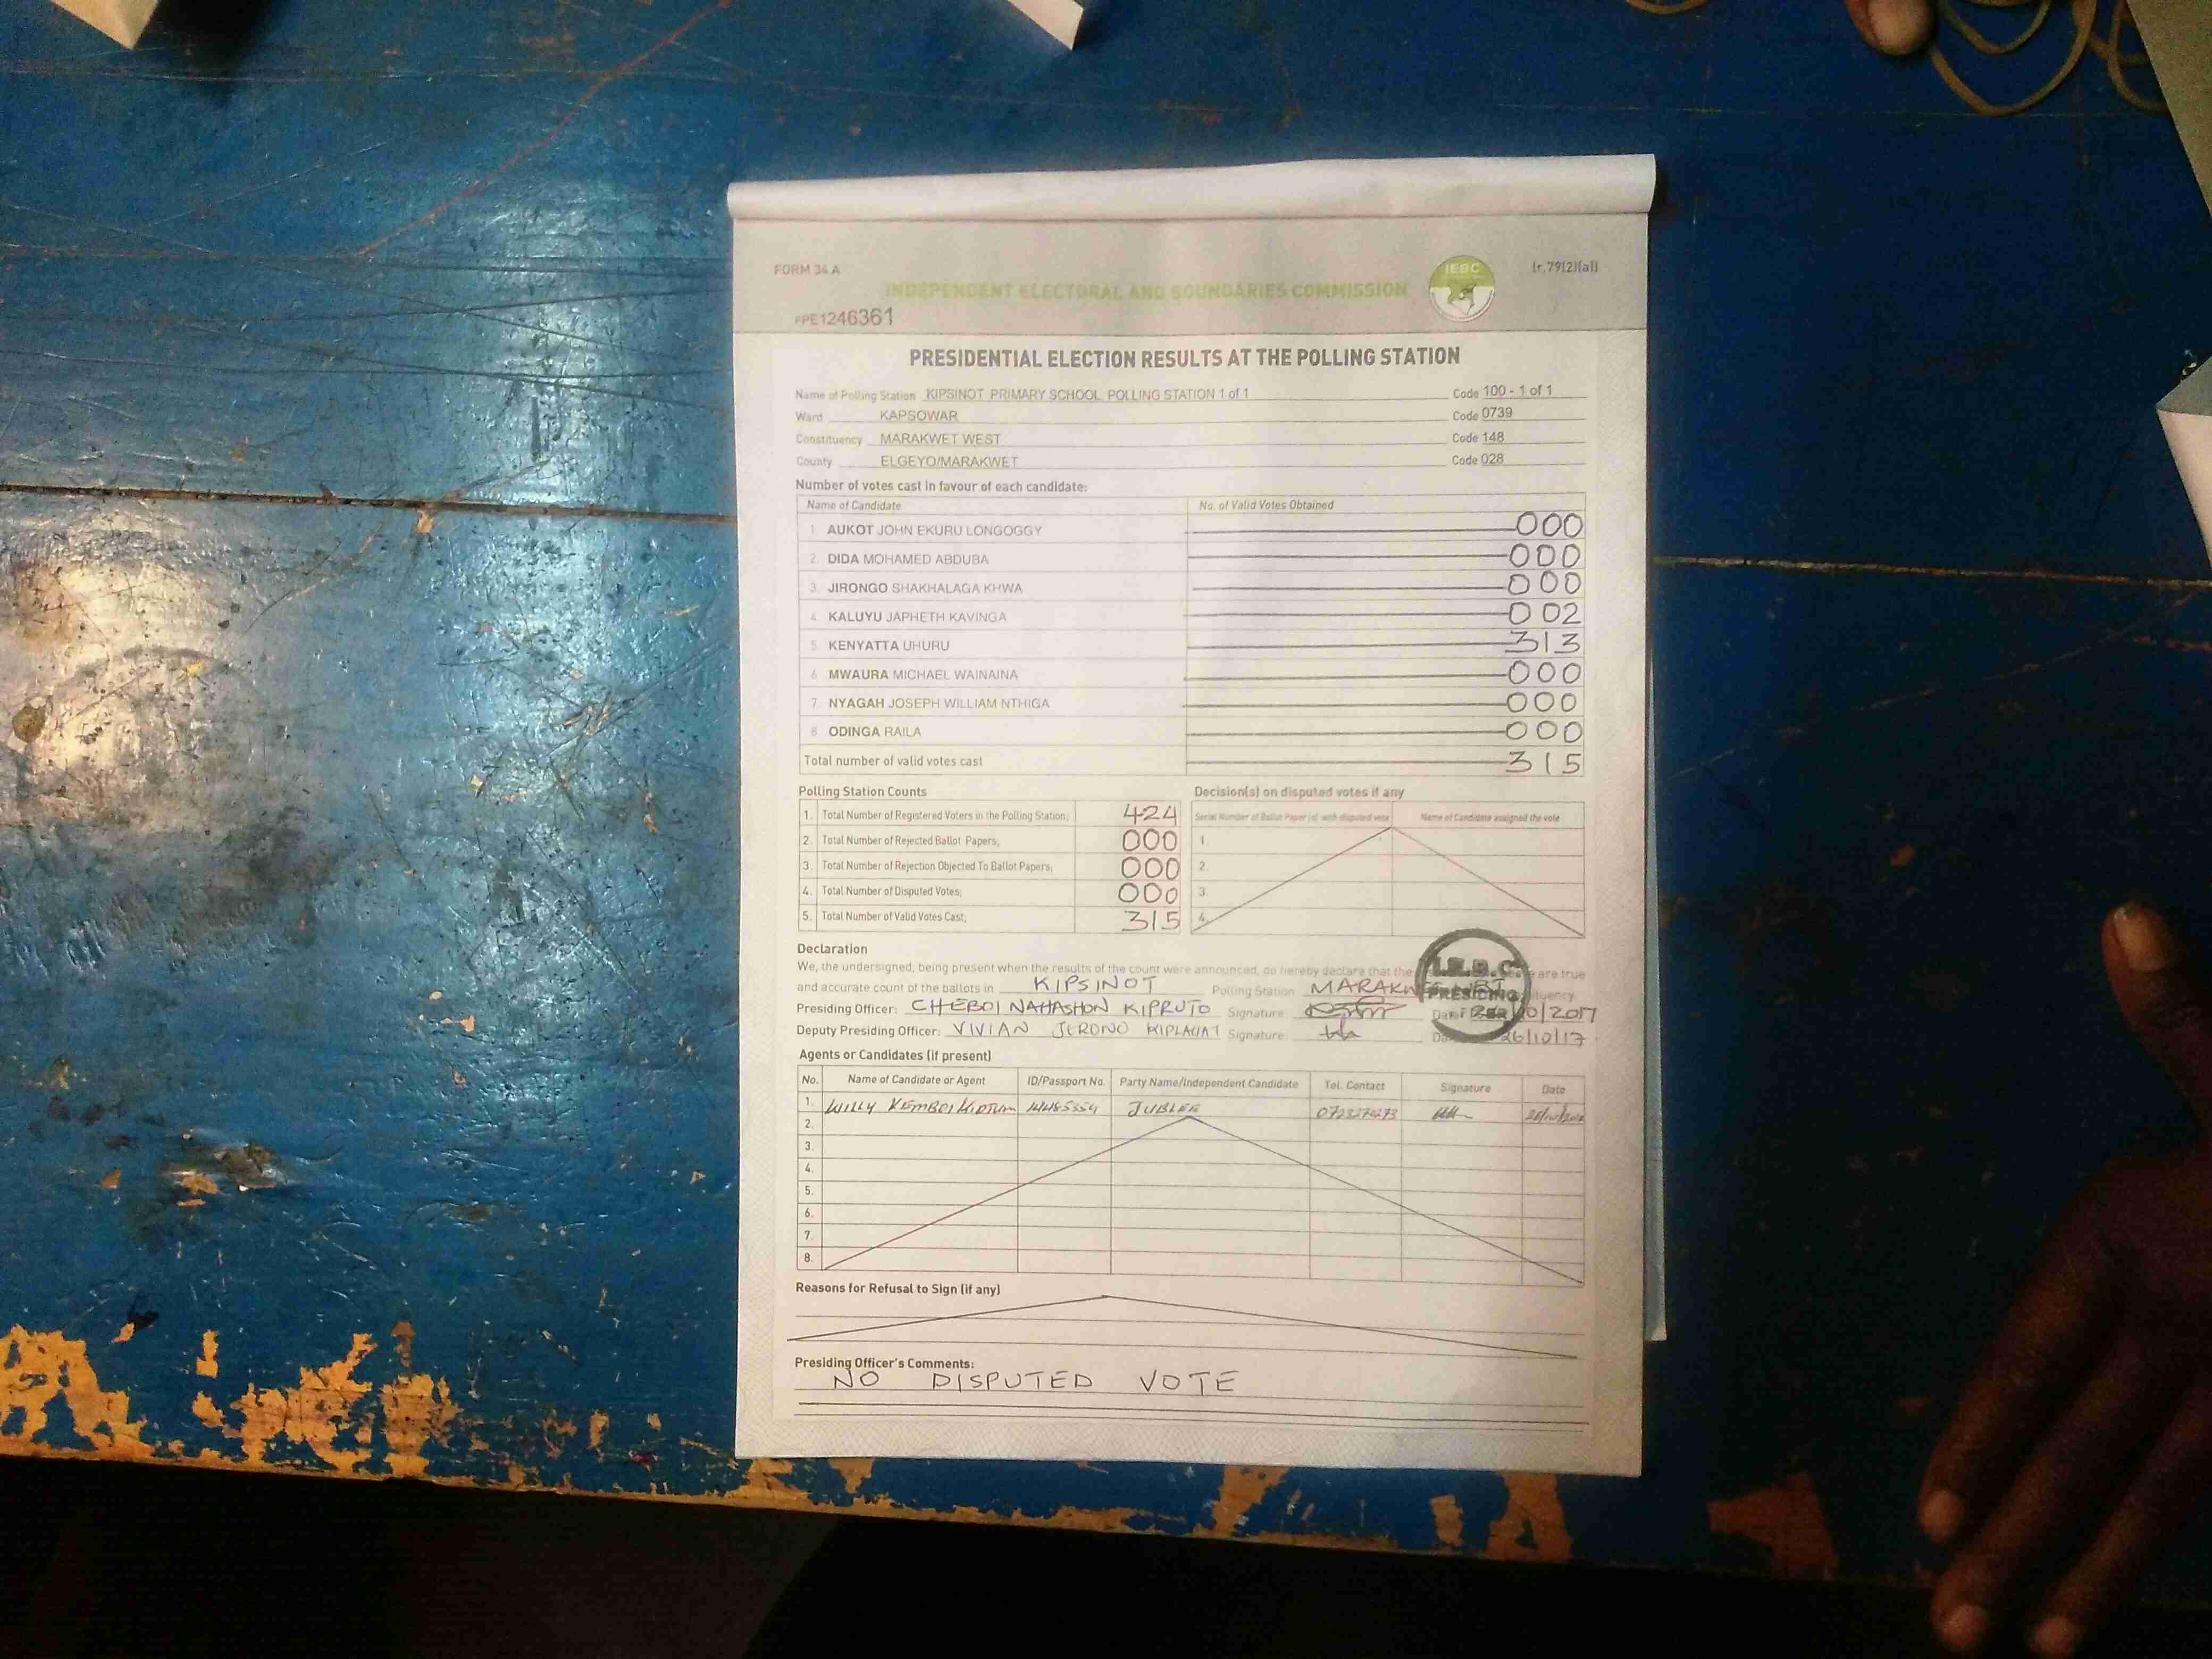 FORM 34 A
IEBC
(r.79(2)(a))
INDEPENDENT ELECTORAL AND BOUNDARIES COMMISSION
FPE1246361
PRESIDENTIAL ELECTION RESULTS AT THE POLLING STATION
Name of Polling Station KIPSINOT PRIMARY SCHOOL POLLING STATION 1 of 1 Code 100 - 1 of 1
Ward KAPSOWAR Code 0739
Constituency MARAKWET WEST Code 148
County ELGEYO/MARAKWET Code 028
Number of votes cast in favour of each candidate:
Name of Candidate No. of Valid Votes Obtained
1. AUKOT JOHN EKURU LONGOGGY 000
2. DIDA MOHAMED ABDUBA 000
3. JIRONGO SHAKHALAGA KHWA 000
4. KALUYU JAPHETH KAVINGA 002
5. KENYATTA UHURU 313
6. MWAURA MICHAEL WAINAINA 000
7. NYAGAH JOSEPH WILLIAM NTHIGA 000
8. ODINGA RAILA 000
Total number of valid votes cast 315
Polling Station Counts
1. Total Number of Registered Voters in the Polling Station; 424
2. Total Number of Rejected Ballot Papers; 000
3. Total Number of Rejection Objected To Ballot Papers; 000
4. Total Number of Disputed Votes; 000
5. Total Number of Valid Votes Cast; 315
Decision(s) on disputed votes if any
Serial Number of Ballot Paper (s) with disputed vote Name of Candidate assigned the vote
1.
2.
3.
4.
Declaration
We, the undersigned, being present when the results of the count were announced, do hereby declare that the are true
and accurate count of the ballots in KIPSINOT Polling Station MARAKWET
I.E.B.C
PRESIDING
Presiding Officer: CHEBOI NAHASHON KIPRUTO Signature Date /10/2017
Deputy Presiding Officer: VIVIAN JERONO KIPLAGAT Signature 26/10/17
Agents or Candidates (if present)
No. Name of Candidate or Agent ID/Passport No. Party Name/Independent Candidate Tel. Contact Signature Date
1. WILLY KEMBOI JUBLEE
2.
3.
4.
5.
6.
7.
8.
Reasons for Refusal to Sign (if any)
Presiding Officer's Comments:
NO DISPUTED VOTE